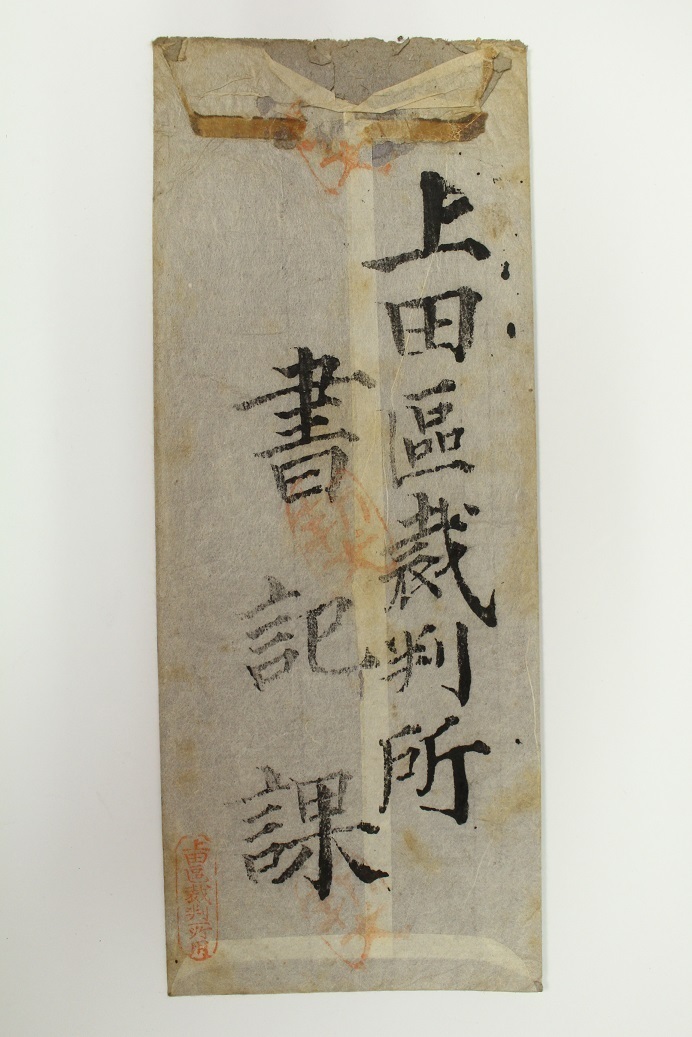 上田區裁判所
書記課
上田區裁判所用